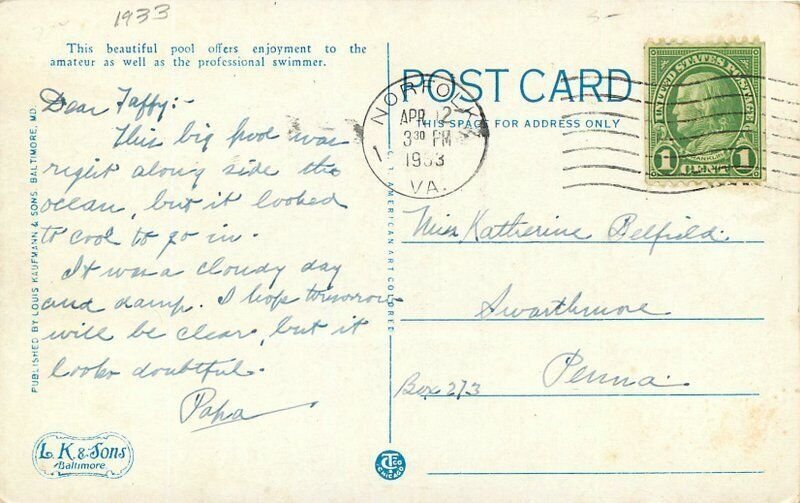 1933
This beautiful pool offers enjoyment to the
amateur as well as the professional swimmer.
Dear Taffy:-
This big pool was
right along side the
ocean, but it looked
to cool to go in.
It was a cloudy day
and damp. I hope tomorrow
will be clear, but it
looks doubtful.
Papa
PUBLISHED BY LOUIS KAUFMANN & SONS, BALTIMORE, MD.
L. K. & Sons
Baltimore
C. T. AMERICAN ART COLORED
POST CARD
THIS SPACE FOR ADDRESS ONLY
NORFOLK
APR 12
3 30 PM
1933
1
VA.
UNITED STATES POSTAGE
FRANKLIN
1 1
Miss Katherine Belfield.
Swarthmore
Box 273 Penna.
CHICAGO